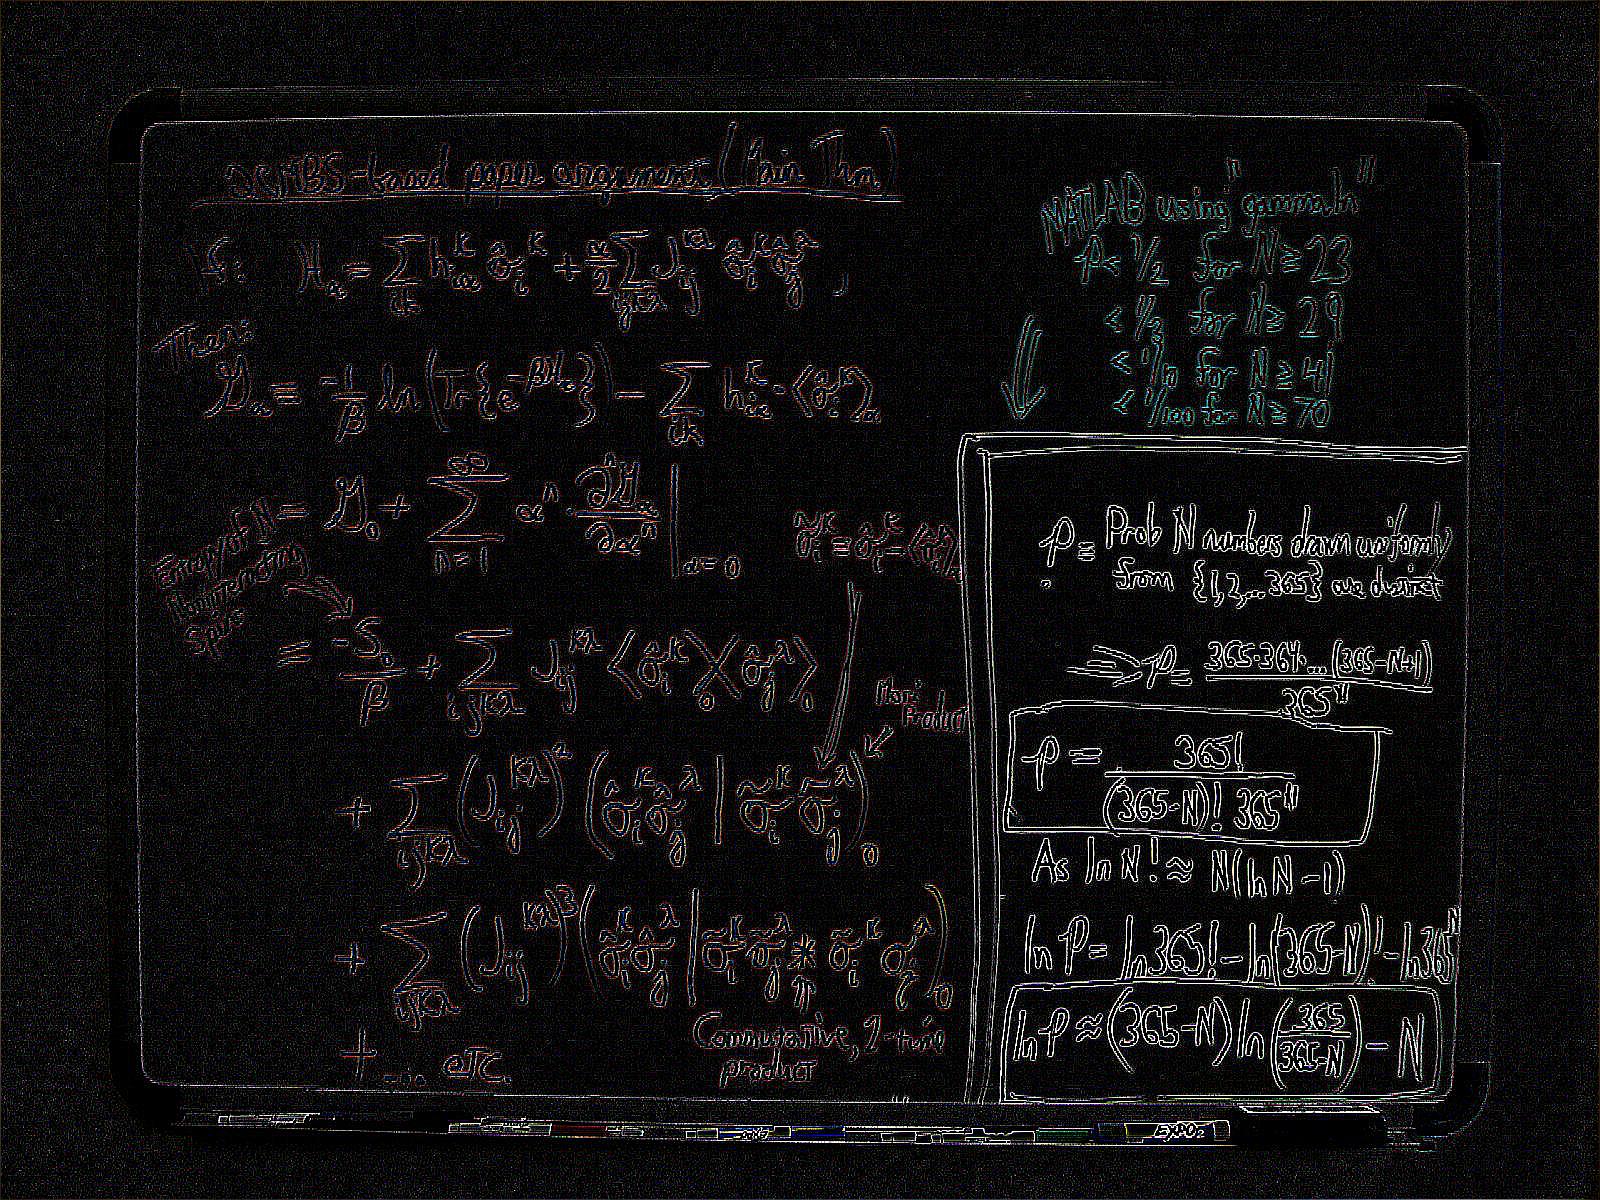 -based paper argument (Main Thm)
If: ℋ_α = Σ_{ik} h_{iα}^k σ̂_i^k + α/2 Σ_{ijkλ} J_{ij}^{kλ} σ̂_i^k σ̂_j^λ ,
Then:
𝒢_α = -1/β ln(Tr{e^{-βℋ_α}}) - Σ_{ik} h_{iα}^k · ⟨σ̂_i^k⟩_α
= 𝒢_0 + Σ_{n=1}^∞ α^n · ∂^n𝒢_α/∂α^n |_{α=0}
Entropy of N
Spins
σ̃_i^k = σ̂_i^k - ⟨σ̂_i^k⟩
= -S_0/β + Σ_{ijkλ} J_{ij}^{kλ} ⟨σ̂_i^k⟩_0⟨σ̂_j^λ⟩_0
Mori Product
+ Σ_{ijkλ} (J_{ij}^{kλ})^2 (σ̂_i^k σ̂_j^λ | σ̃_i^k σ̃_j^λ)_0
+ Σ_{ijkλ} (J_{ij}^{kλ})^3 (σ̂_i^k σ̂_j^λ | σ̃_i^k σ̃_j^λ * σ̃_i^k σ_j^λ)_0
Commutative, 2-time
product
+ ... etc.
MATLAB using "gammaln"
P < 1/2 for N ≥ 23
< 1/3 for N ≥ 29
< 1/10 for N ≥ 41
< 1/100 for N ≥ 70
P = Prob N numbers drawn uniformly
from {1,2,...365} are distinct
⟹ P = 365·364·...(365-N+1) / 365^N
P = 365! / (365-N)! 365^N
As ln N! ≈ N(ln N - 1)
ln P = ln 365! - ln(365-N)! - ln 365^N
ln P ≈ (365-N) ln(365/(365-N)) - N
EXPO2